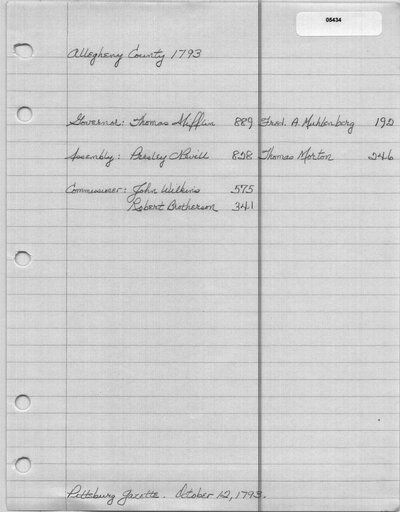 05434
Allegheny County 1793
Governor: Thomas Mifflin 889 Fred. A. Muhlenberg 192
Assembly: Presley Nevill 828 Thomas Morton 246
Commissioner: John Wilkins 575
Robert Brotherson 341
Pittsburg Gazette. October 12, 1793.